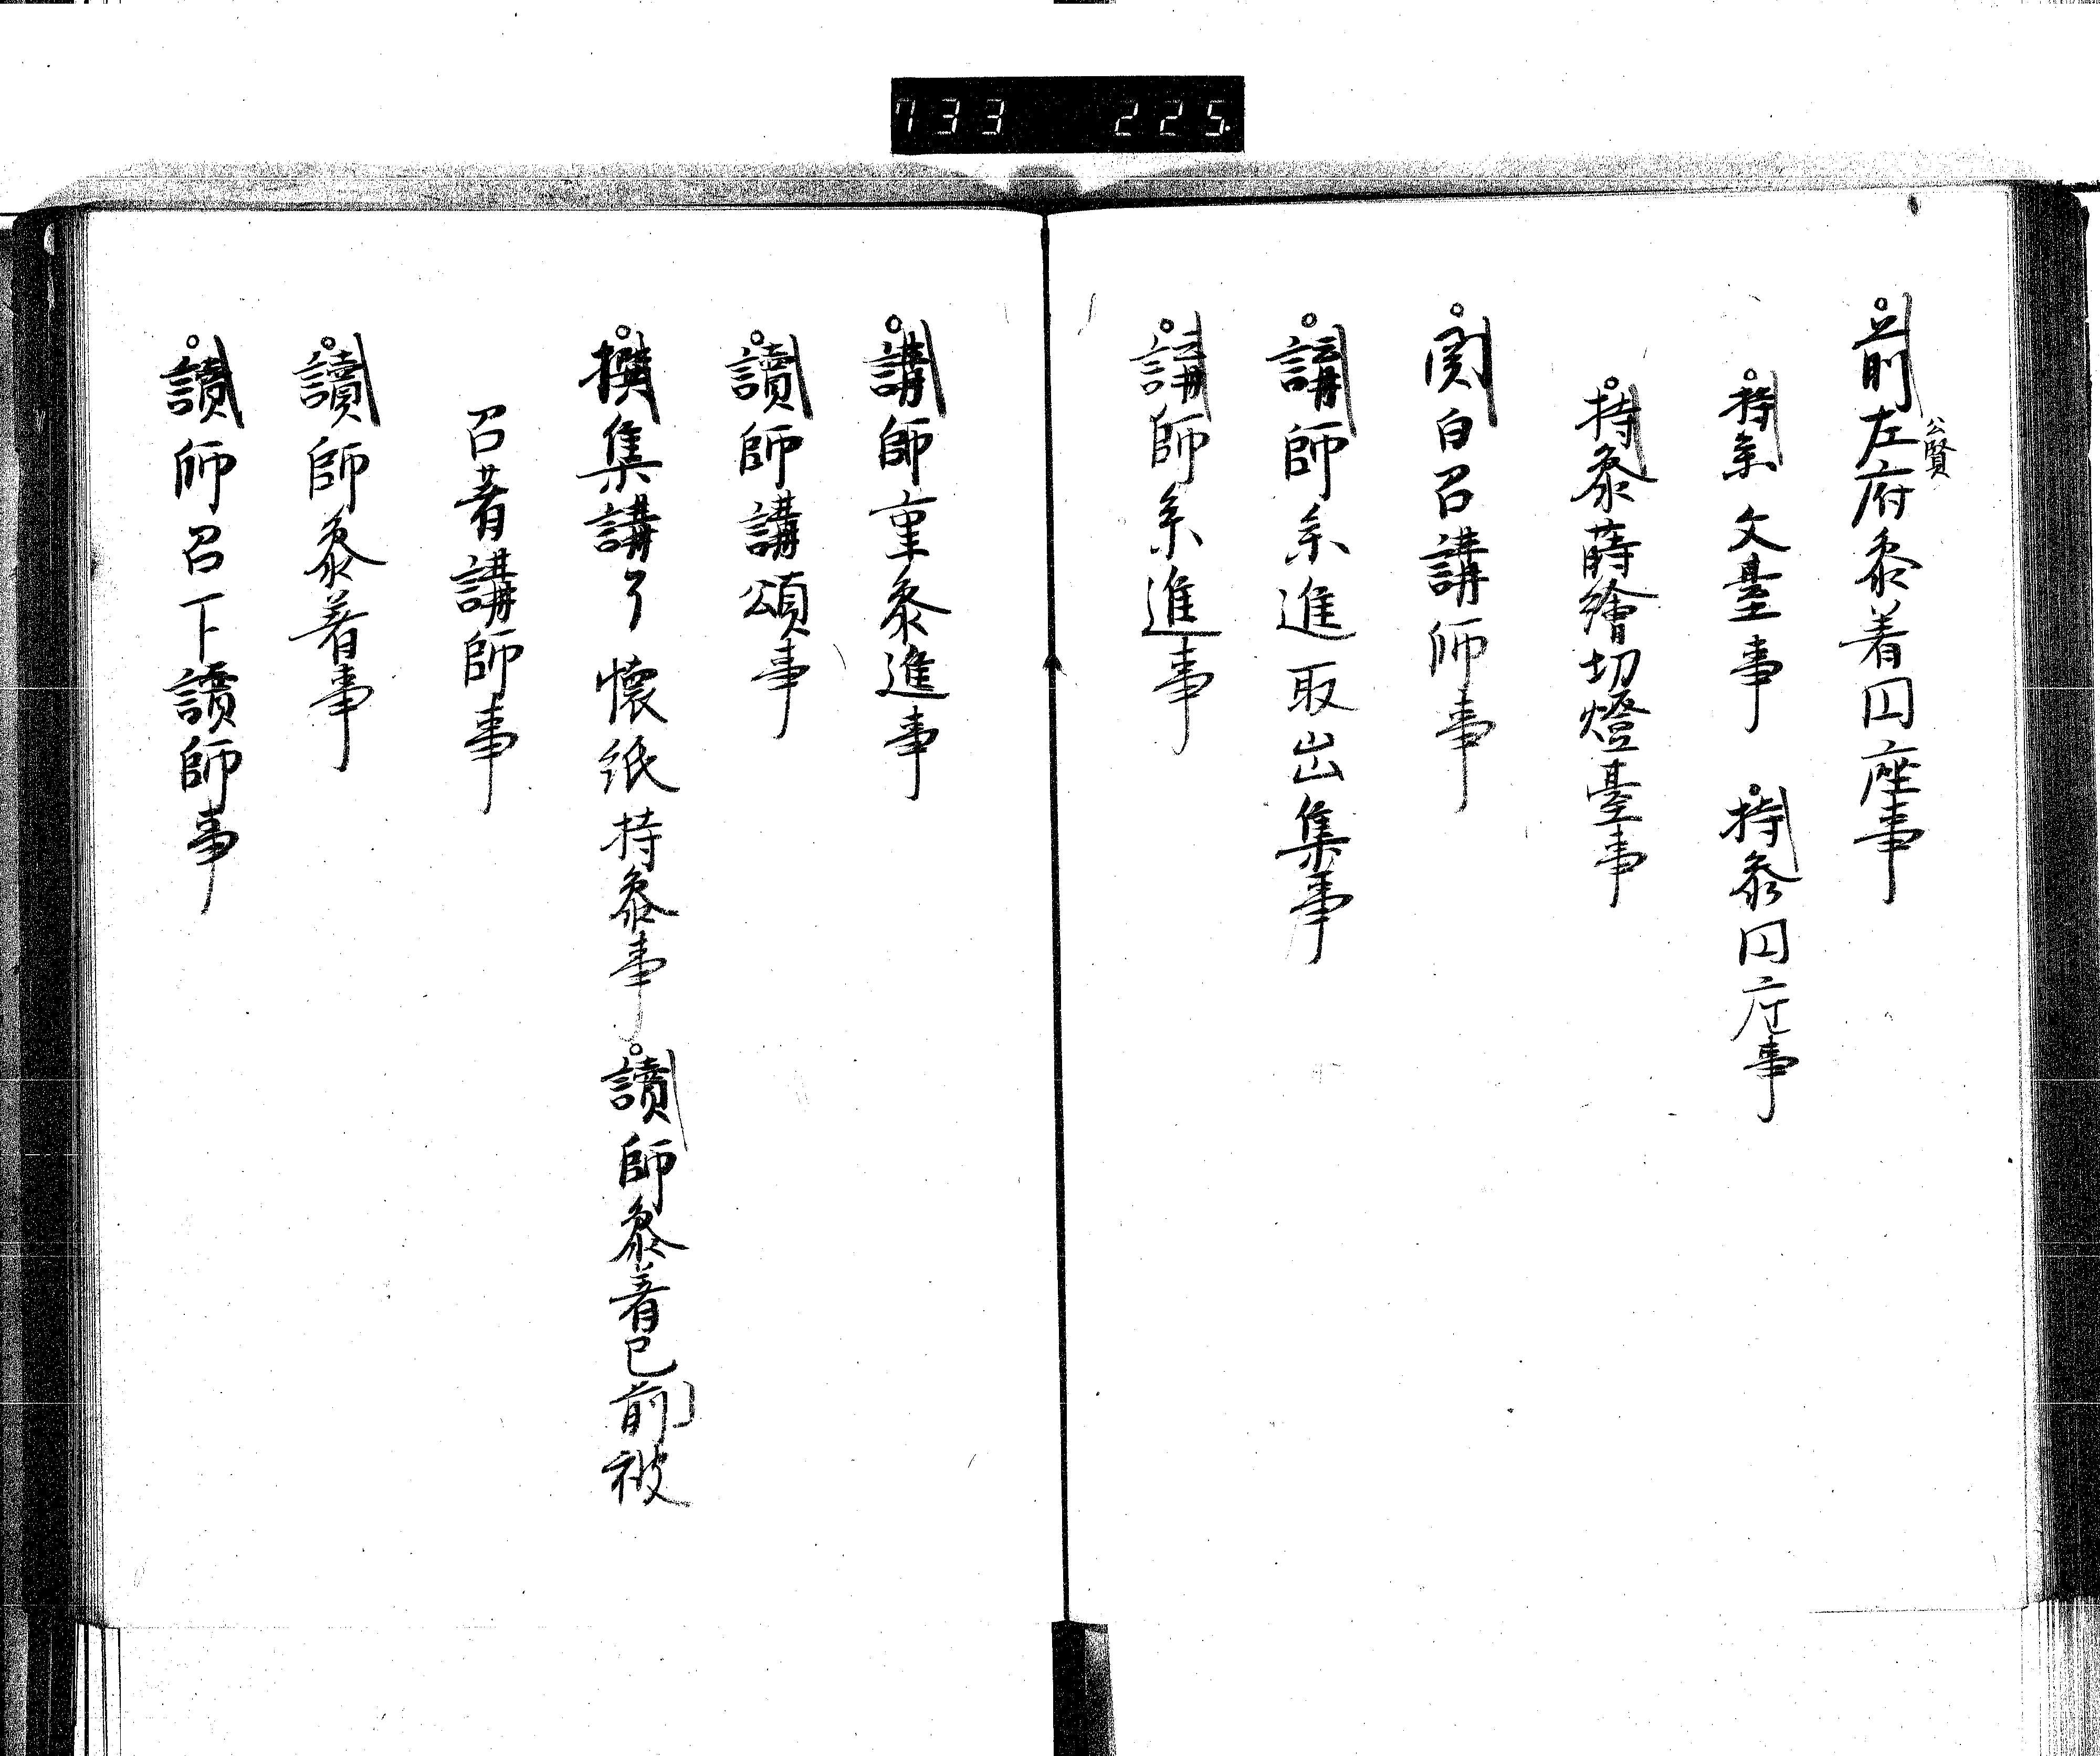 733 225
○前左府参着円座事
公賢
○持参文臺事 ○持参円座事
○持参蒔繪切燈臺事
○関白召講師事
○講師参進取出集事
○講師参進事
○講師重参進事
○讀師講頌事
○撰集講了懐紙持参事 ○讀師参着已前被
召着講師事
○讀師参着事
○讀師召下讀師事